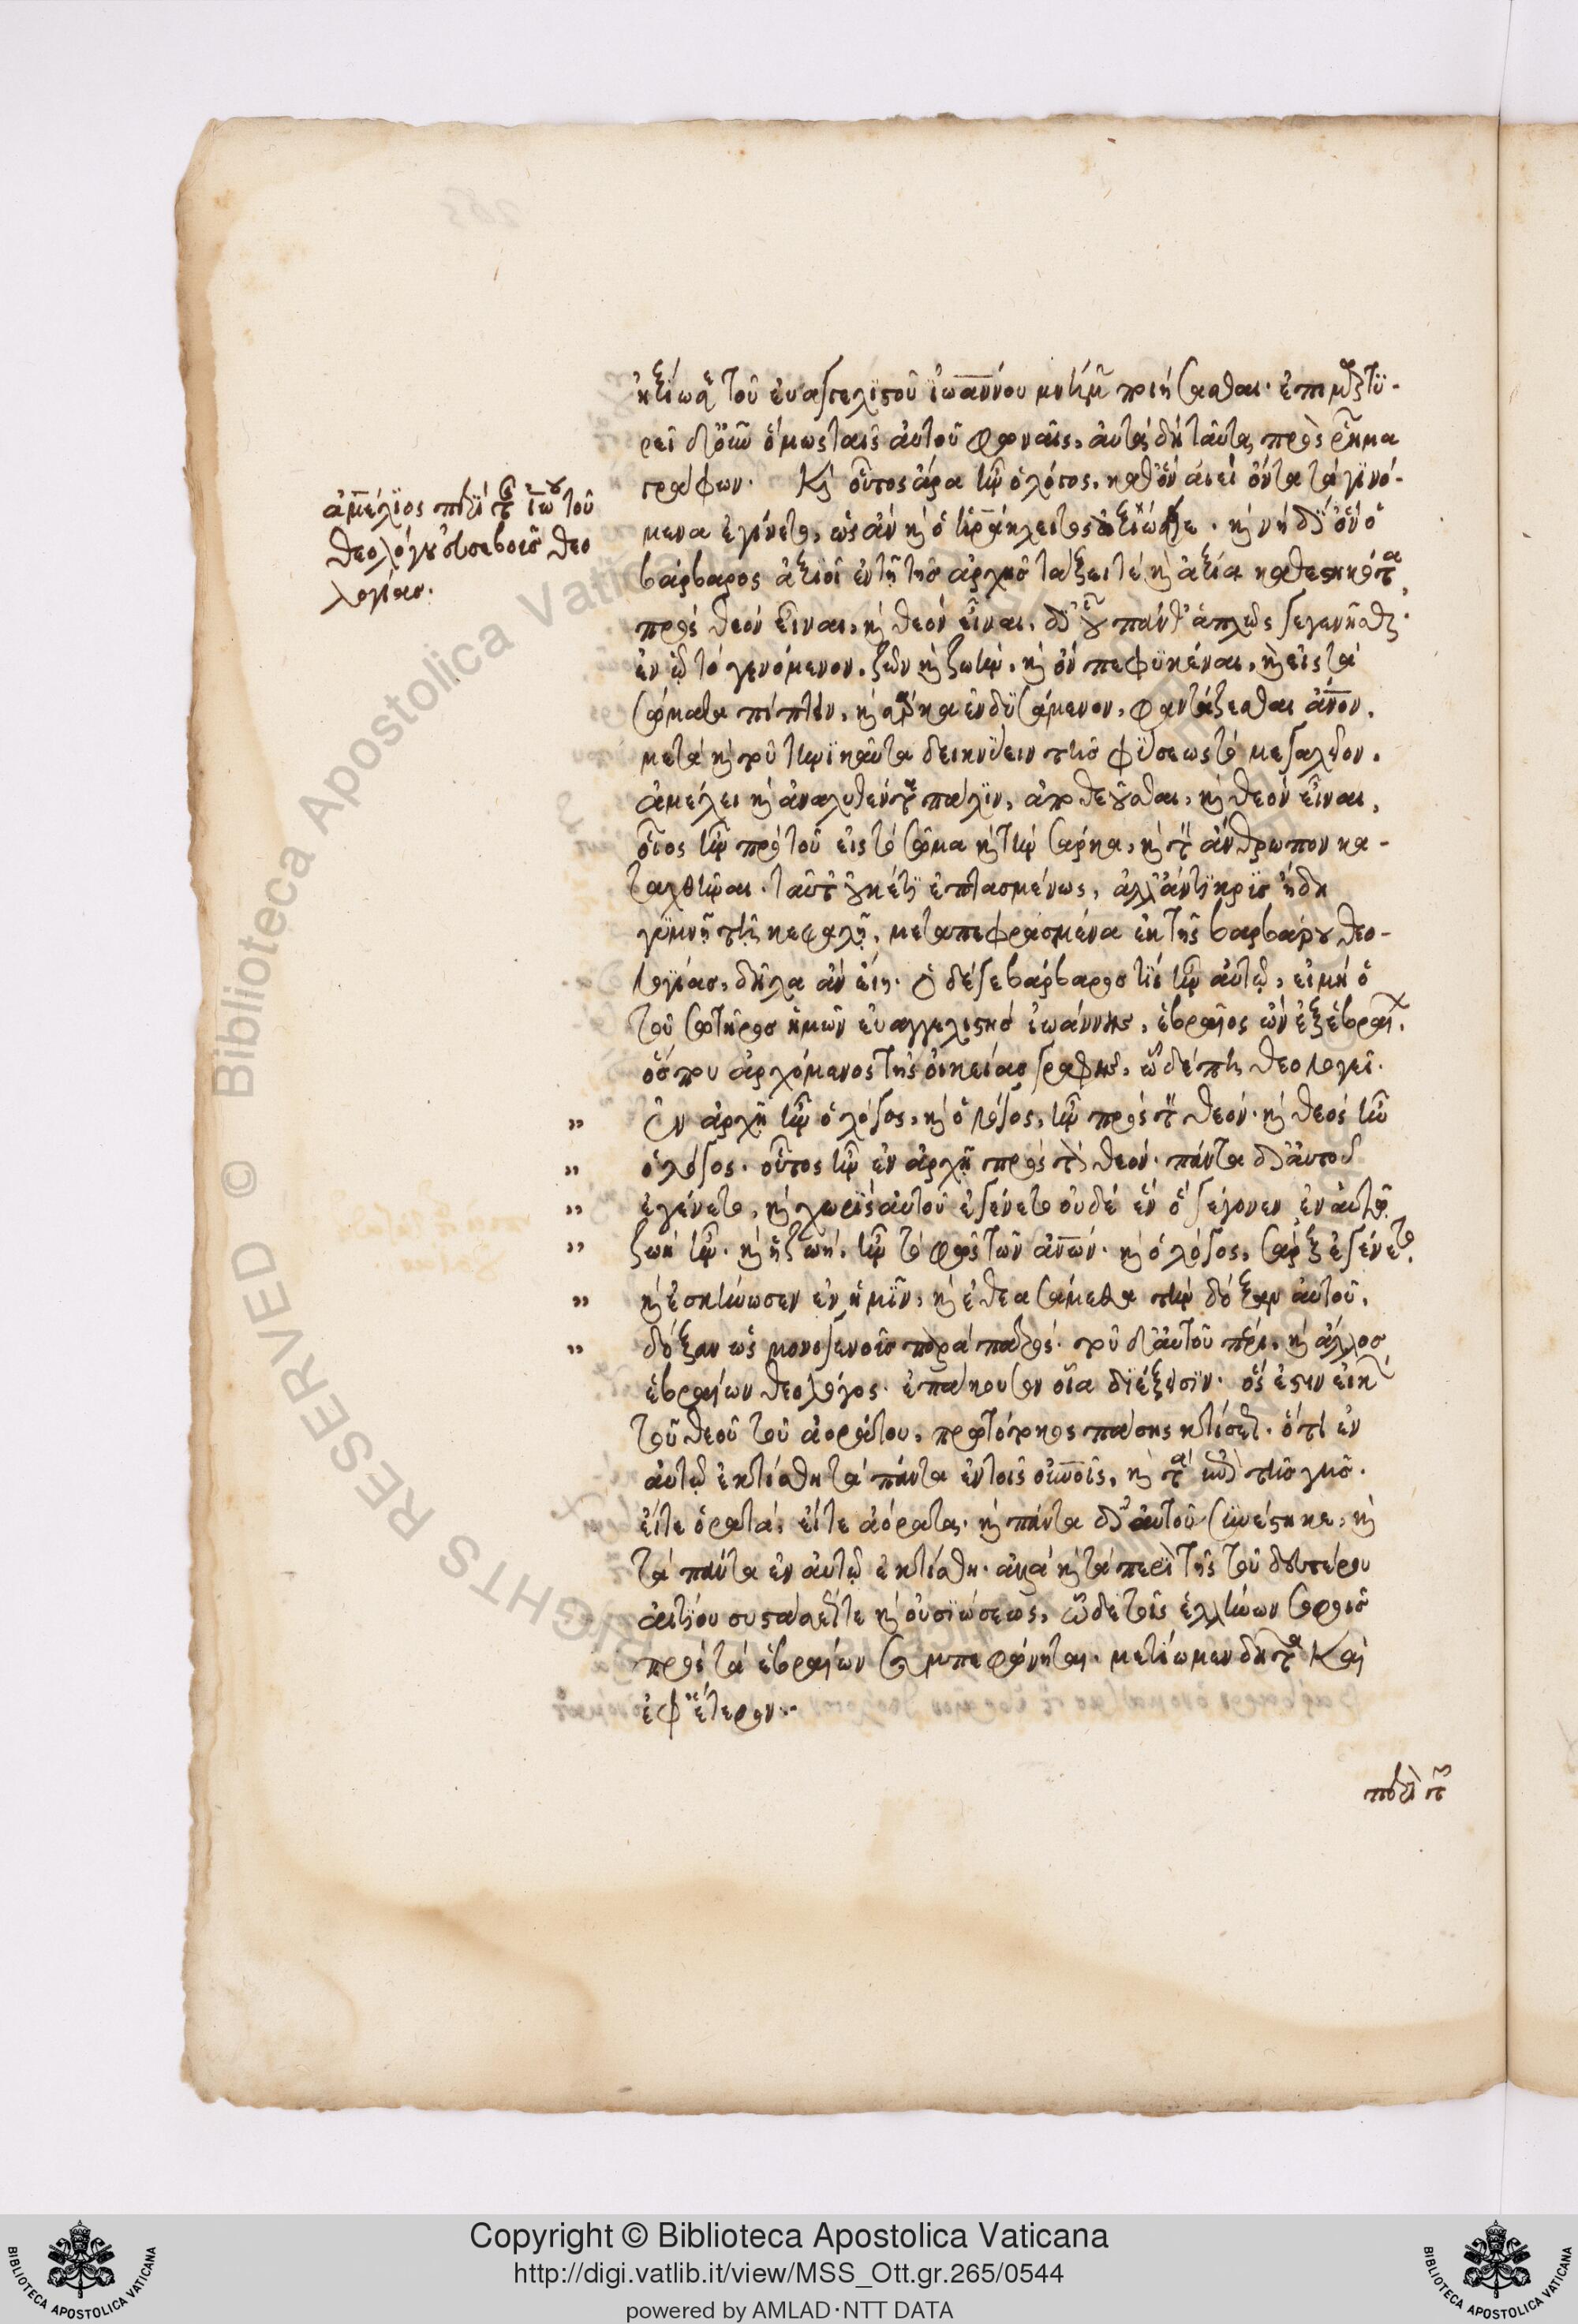 ἠξίωσε τοῦ εὐαγγελιστοῦ ἰωάννου μνήμην ποιήσασθαι· ἐπιμαρτυ-
ρεῖ δ' οὖν ὅμως ταῖς αὐτοῦ φωναῖς, αὐτὰ δὴ ταῦτα πρὸς ῥῆμα
γράφων. Καὶ οὗτος ἄρα ἦν ὁ λόγος, καθ' ὃν αἰεὶ ὄντα τὰ γινό-
μενα ἐγίνετο, ὡς ἂν καὶ ὁ ἡράκλειτος ἀξιώσειε. καὶ νὴ δί' ὃν ὁ
βάρβαρος ἀξιοῖ ἐν τῇ τῆς ἀρχῆς τάξει τὲ καὶ ἀξία καθεστηκότα
πρὸς θεὸν εἶναι, καὶ θεὸν εἶναι. δι' οὗ πάνθ' ἁπλῶς γεγενῆσθαι·
ἐν ᾧ τὸ γενόμενον, ζῶν καὶ ζωὴν, καὶ ὂν πεφυκέναι. καὶ εἰς τὰ
σώματα πίπτειν, καὶ σάρκα ἐνδυσάμενον, φαντάζεσθαι ἄνον.
μετὰ καὶ τοῦ τηνικαῦτα δεικνύειν τῆς φύσεως τὸ μεγαλεῖον.
ἀμέλει καὶ ἀναλυθέντα πάλιν, ἀποθεοῦσθαι, καὶ θεὸν εἶναι,
οἷος ἦν πρὸ τοῦ εἰς τὸ σῶμα καὶ τὴν σάρκα, καὶ τὸν ἄνθρωπον κα-
ταχθῆναι. ταῦτ' οὐκέτι ἐπλασμένως, ἀλλ' ἄντικρυς ἤδη
γυμνῇ τῇ κεφαλῇ, μεταπεφρασμένα ἐκ τῆς βαρβάρου θεο-
λογίας, δῆλα ἂν εἴη. ὁ δέ γε βάρβαρος τίς ἦν αὐτῷ, εἰ μὴ ὁ
τοῦ σωτῆρος ἡμῶν εὐαγγελιστὴς ἰωάννης, ἑβραῖος ὢν ἐξ ἑβραίων.
ὅς που ἀρχόμενος τῆς οἰκείας γραφῆς, ὧδέ πη θεολογεῖ.
„ Ἐν ἀρχῇ ἦν ὁ λόγος, καὶ ὁ λόγος, ἦν πρὸς τὸν θεόν· καὶ θεὸς ἦν
„ ὁ λόγος. οὗτος ἦν ἐν ἀρχῇ πρὸς τὸν θεόν· πάντα δι' αὐτοῦ
„ ἐγένετο, καὶ χωρὶς αὐτοῦ ἐγένετο οὐδὲ ἓν ὃ γέγονεν ἐν αὐτῷ
„ ζωὴ ἦν. καὶ ἡ ζωὴ, ἦν τὸ φῶς τῶν ἀνων. καὶ ὁ λόγος, σὰρξ ἐγένετο.
„ καὶ ἐσκήνωσεν ἐν ἡμῖν, καὶ ἐθεασάμεθα τὴν δόξαν αὐτοῦ,
„ δόξαν ὡς μονογενοῦς παρὰ πατρός. τοῦ δ' αὐτοῦ πέρι, καὶ ἄλλος
ἑβραίων θεολόγος. ἐπάκουσον οἷα διέξεισιν· ὅς ἐστιν εἰκὼν
τοῦ θεοῦ τοῦ ἀοράτου, πρωτότοκος πάσης κτίσεως. ὅτι ἐν
αὐτῷ ἐκτίσθη τὰ πάντα ἐν τοῖς οὐνοῖς, καὶ τὰ ἐπὶ τῆς γῆς.
εἴτε ὁρατά, εἴτε ἀόρατα. καὶ πάντα δι' αὐτοῦ συνέστηκε, καὶ
τὰ πάντα ἐν αὐτῷ ἐκτίσθη. ἀλλὰ καὶ τὰ περὶ τῆς τοῦ δευτέρου
αἰτίου συστάσεώς τε καὶ οὐσιώσεως, ὧδε τοῖς ἑλλήνων σοφοῖς
πρὸς τὰ ἑβραίων συμπεφώνηται. μετίωμεν δῆτα καὶ
ἐφ' ἕτερον.
ἀμέλιος περὶ τῆς ἰω τοῦ
θεολόγου εὐσεβοῦς θεο
λογίας.
περὶ τῆς
Copyright © Biblioteca Apostolica Vaticana
http://digi.vatlib.it/view/MSS_Ott.gr.265/0544
powered by AMLAD·NTT DATA
BIBLIOTECA APOSTOLICA VATICANA
BIBLIOTECA APOSTOLICA VATICANA